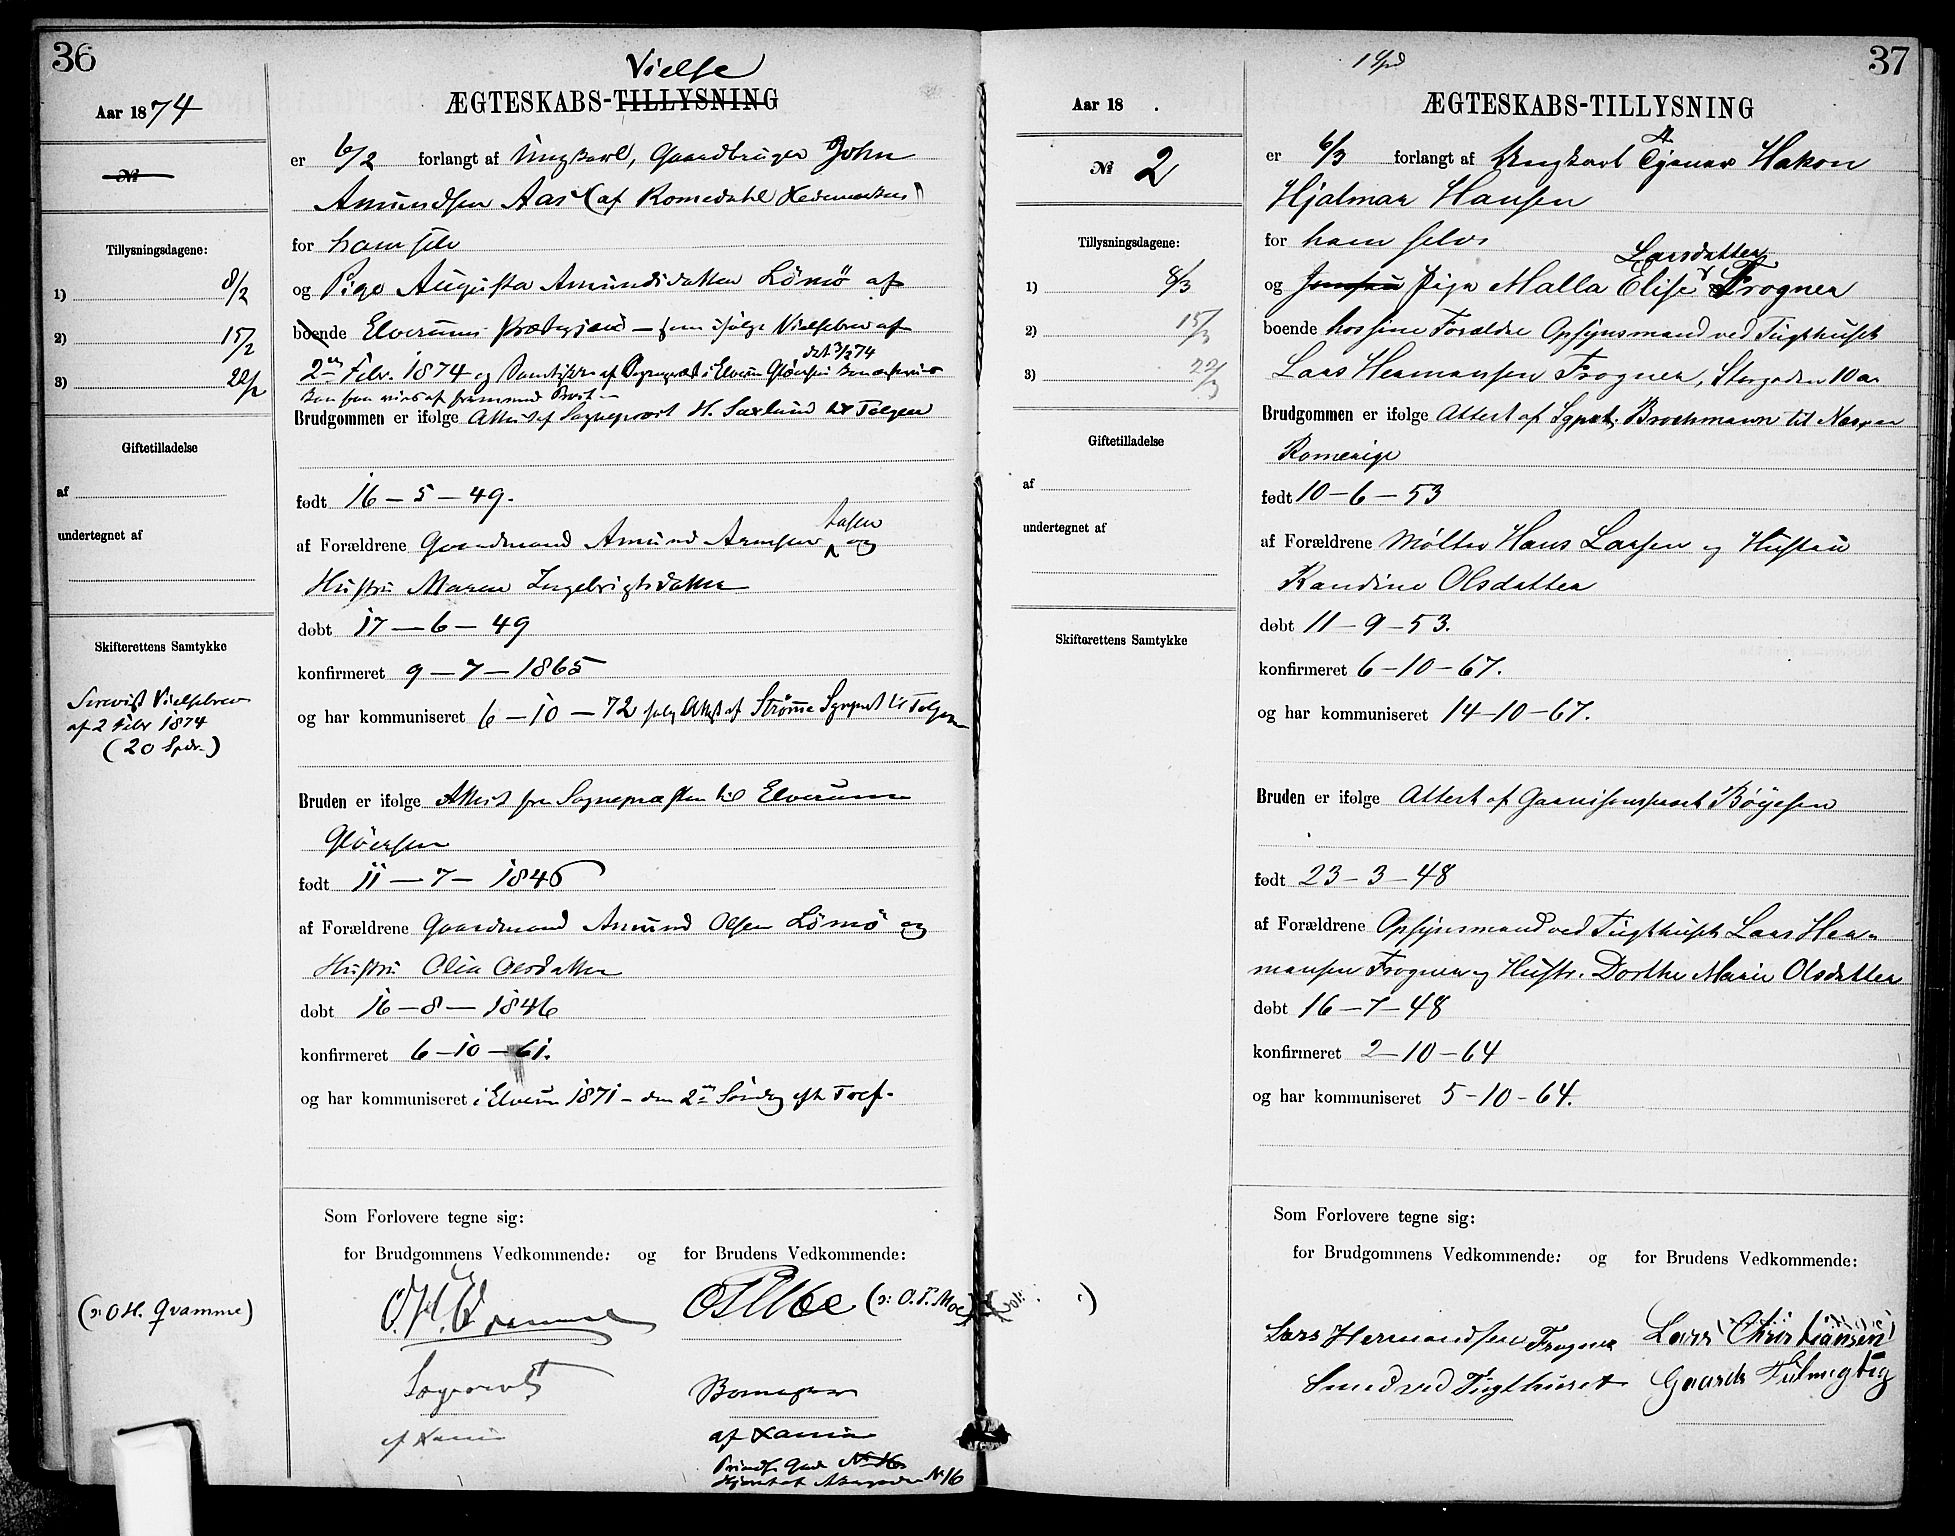 36
Aar 1874
Vielse
ÆGTESKABS-TILLYSNING
№
er 6/2 forlangt af Ungkarl, Gaardbruger John
Amundsen Aas (af Romedahl Hedemarken)
Tillysningsdagene:
for ham selv
1) 8/2
og Pige Augusta Amundsdatter Lömö af
2) 15/2
boende Elverums Præstegjeld – som ifølge Vielsebrev af
dat 3/2 74
3) 22/2
2den Febr. 1874 og af Sognepræst i Elverum Glöersen
kan faa vies af fremmed Præst –
Brudgommen er ifølge Attest af Sogneprest H. Saxlund til Tolgen
Giftetilladelse
af
født 16 – 5 – 49.
undertegnet af
af Forældrene Gaardmand Amund og
Hustru Maren Ingebrigtsdatter
døbt 17 – 6 – 49
Skifterettens Samtykke
konfirmeret 9 – 7 – 1865
Vielsebrev
af 2 Febr 1874
(20 Spdr.)
og har kommuniseret 6 – 10 – 72 Attest af Strømme Sgnprst til Tolgen
Bruden er ifølge Attest fra Sognepræsten til Elverum
Glöersen
født 11 – 7 – 1846
af Forældrene Gaardmand Amund Olsen Lömö og
Hustru Olia Olsdatter
døbt 16 – 8 – 1846
konfirmeret 6 – 10 – 61.
og har kommuniseret i Elverum 1871 – den 2den Söndag eft Tref.
Som Forlovere tegne sig:
for Brudgommens Vedkommende: og for Brudens Vedkommende:
(ɔ: O H. Qvamme) O.H. Qvamme O T Moe (ɔ: O. T. Moe)
af Xania
af Xania
№ 16
№ 16
37
1 Spd
Aar 18 .
ÆGTESKABS-TILLYSNING
№ 2
er 6/3 forlangt af Ungkarl Hakon
Hjalmar Hansen
Tillysningsdagene:
for ham selv
Larsdatter
1) 8/3
og Jomfru Pige Malla Elise Frogner
2) 15/3
boende hos sine Forældre Opsynsmand ved Tugthuset
3) 22/3
Lars Hermansen Frogner, Storgaden 10 a
Brudgommen er ifølge Attest af Sgprst. Brochmann til Næs paa
Giftetilladelse
Romerige
af
født 10 – 6 – 53
undertegnet af
af Forældrene Møller Hans Larsen og Hustru
Randine Olsdatter
døbt 11 – 9 – 53.
Skifterettens Samtykke
konfirmeret 6 – 10 – 67.
og har kommuniseret 14 – 10 – 67.
Bruden er ifølge Attest af Garnisonsprest Böyesen
født 23 – 3 – 48
af Forældrene Opsynsmand ved Tugthuset Lars Her-
mansen Frogner og Hustr. Dorthe Marie Olsdatter
døbt 16 – 7 – 48
konfirmeret 2 – 10 – 64
og har kommuniseret 5 – 10 – 64.
Som Forlovere tegne sig:
for Brudgommens Vedkommende: og for Brudens Vedkommende:
Lars Hermandsen Frogner Lars Christiansen
Smed ved Tugthuset Gaards